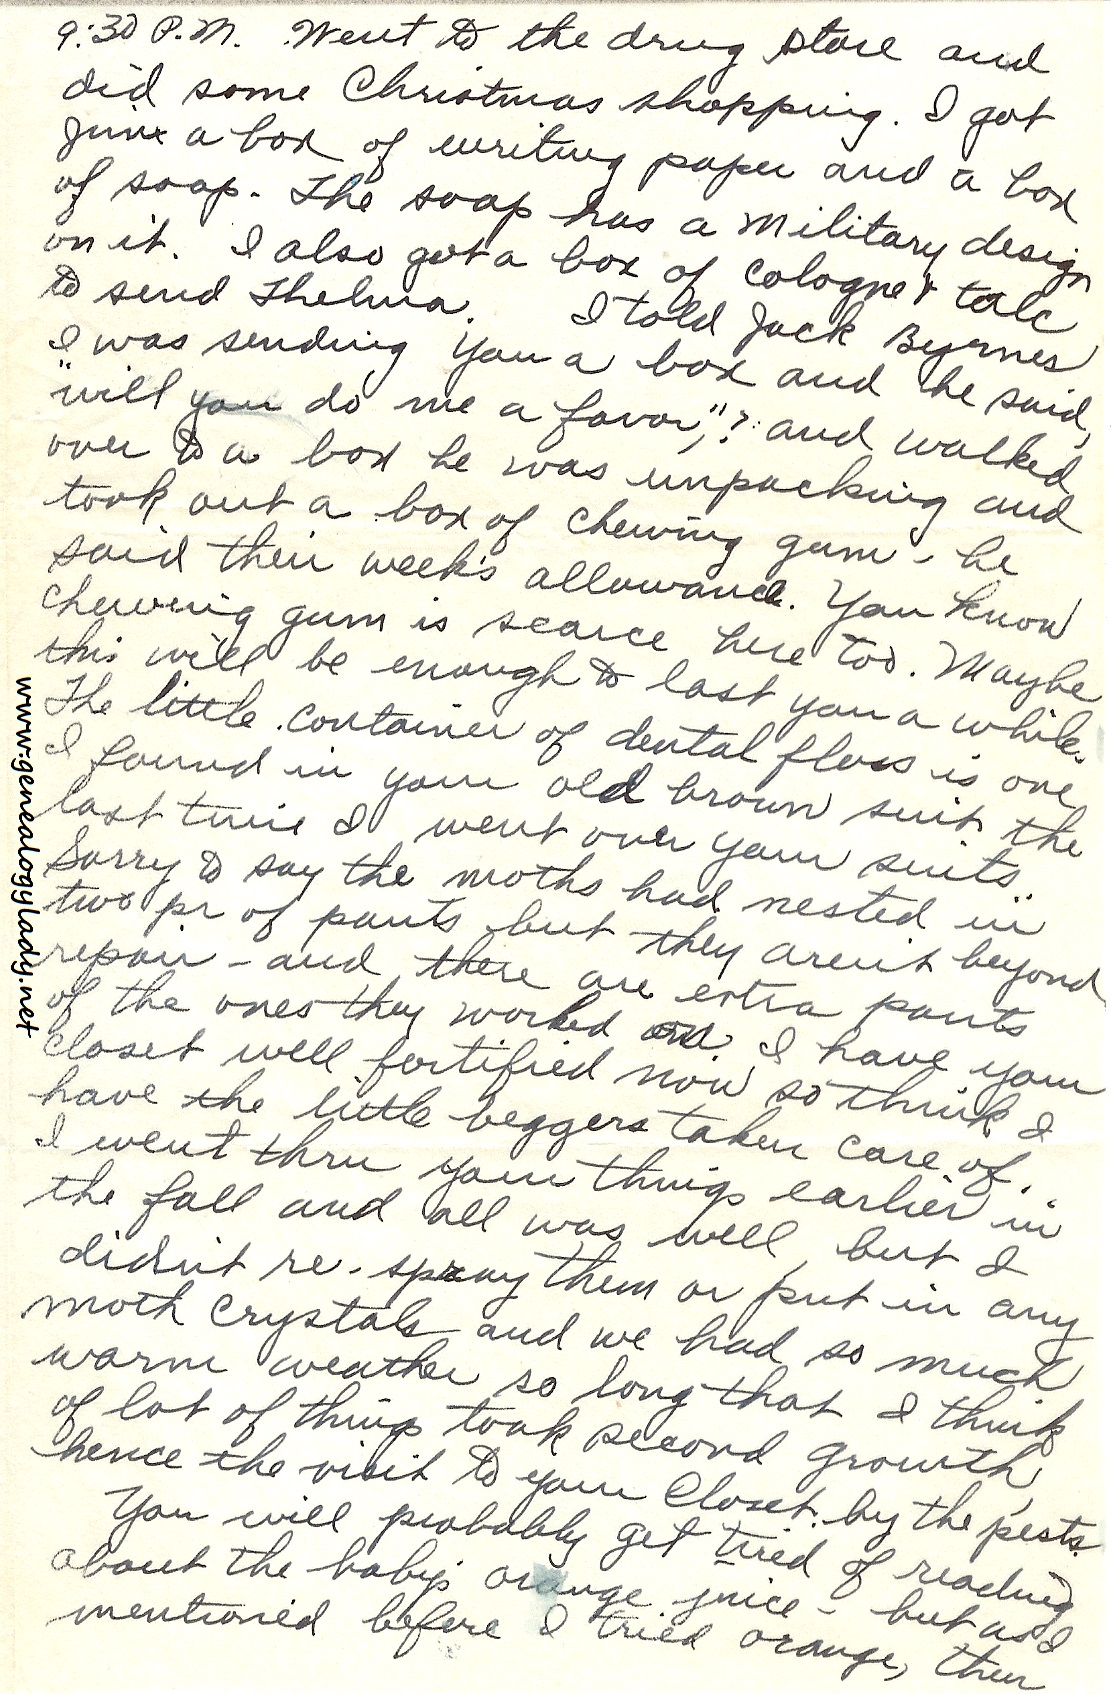 9:30 P.M. Went to the drug store and
did some Christmas shopping. I got
Jinx a box of writing paper and a box
of soap. The soap has a Military design
on it. I also got a box of cologne & talc
to send Thelma. I told Jack Byrnes
I was sending you a box and he said,
"will you do me a favor",? and walked
over to a box he was unpacking and
took out a box of chewing gum - he
said their week's allowance. You know
chewing gum is scarce here too. Maybe
this will be enough to last you a while.
The little container of dental floss is one
I found in your old brown suit the
last time I went over your suits.
Sorry to say the moths had nested in
two pr of pants but they aren't beyond
repair - and there are extra pants
of the ones they worked on. I have your
closet well fortified now so think I
have the little beggers taken care of.
I went thru your things earlier in
the fall and all was well, but I
didn't re-spray them or put in any
moth crystals and we had so much
warm weather so long that I think
of lot of things took second growth,
hence the visit to your closet by the pests.
You will probably get tired of reading
about the baby's orange juice - but as I
mentioned before I tried orange, then
www.genealogylady.net